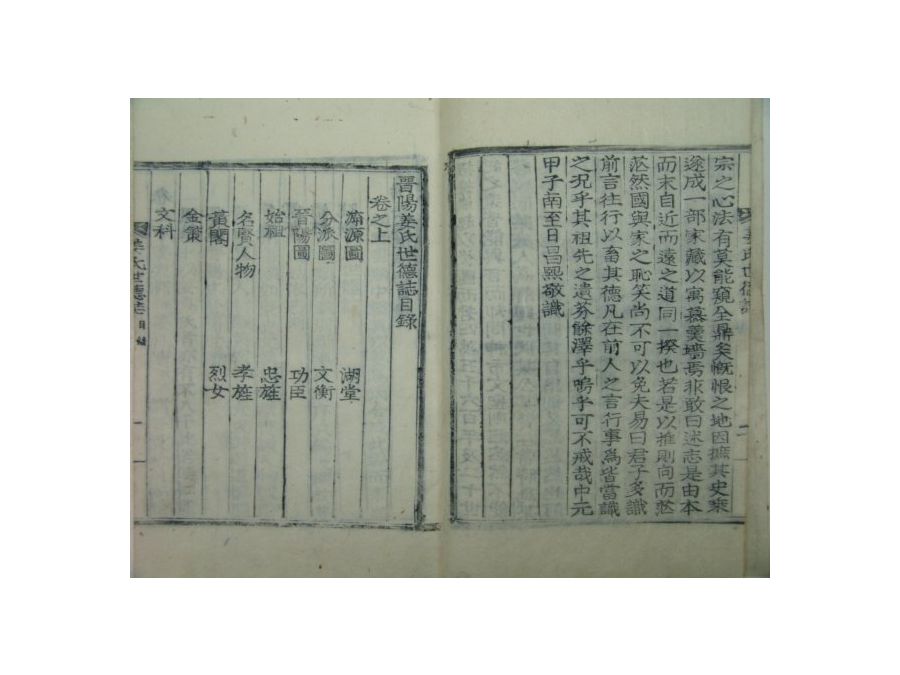 宗之心法有莫能窺全鼎矣慨恨之地因摭其史乘
遂成一部家藏以寓慕羹墻焉非敢曰述志是由本
而末自近而遠之道同一揆也若是以推則向而茫
茫然國與家之恥笑尚不可以免夫易曰君子多識
前言往行以畜其德凡在前人之言行事爲皆當識
之況乎其祖先之遺芬餘澤乎嗚乎可不戒哉中元
甲子南至日昌熙敬識
晋陽姜氏世德誌目錄
卷之上
源圖 湖堂
分派圖 文衡
晋陽圖 功臣
始祖 忠旌
名賢人物 孝旌
黃閣 烈女
金榮
文科
姜氏世德誌 目錄 一